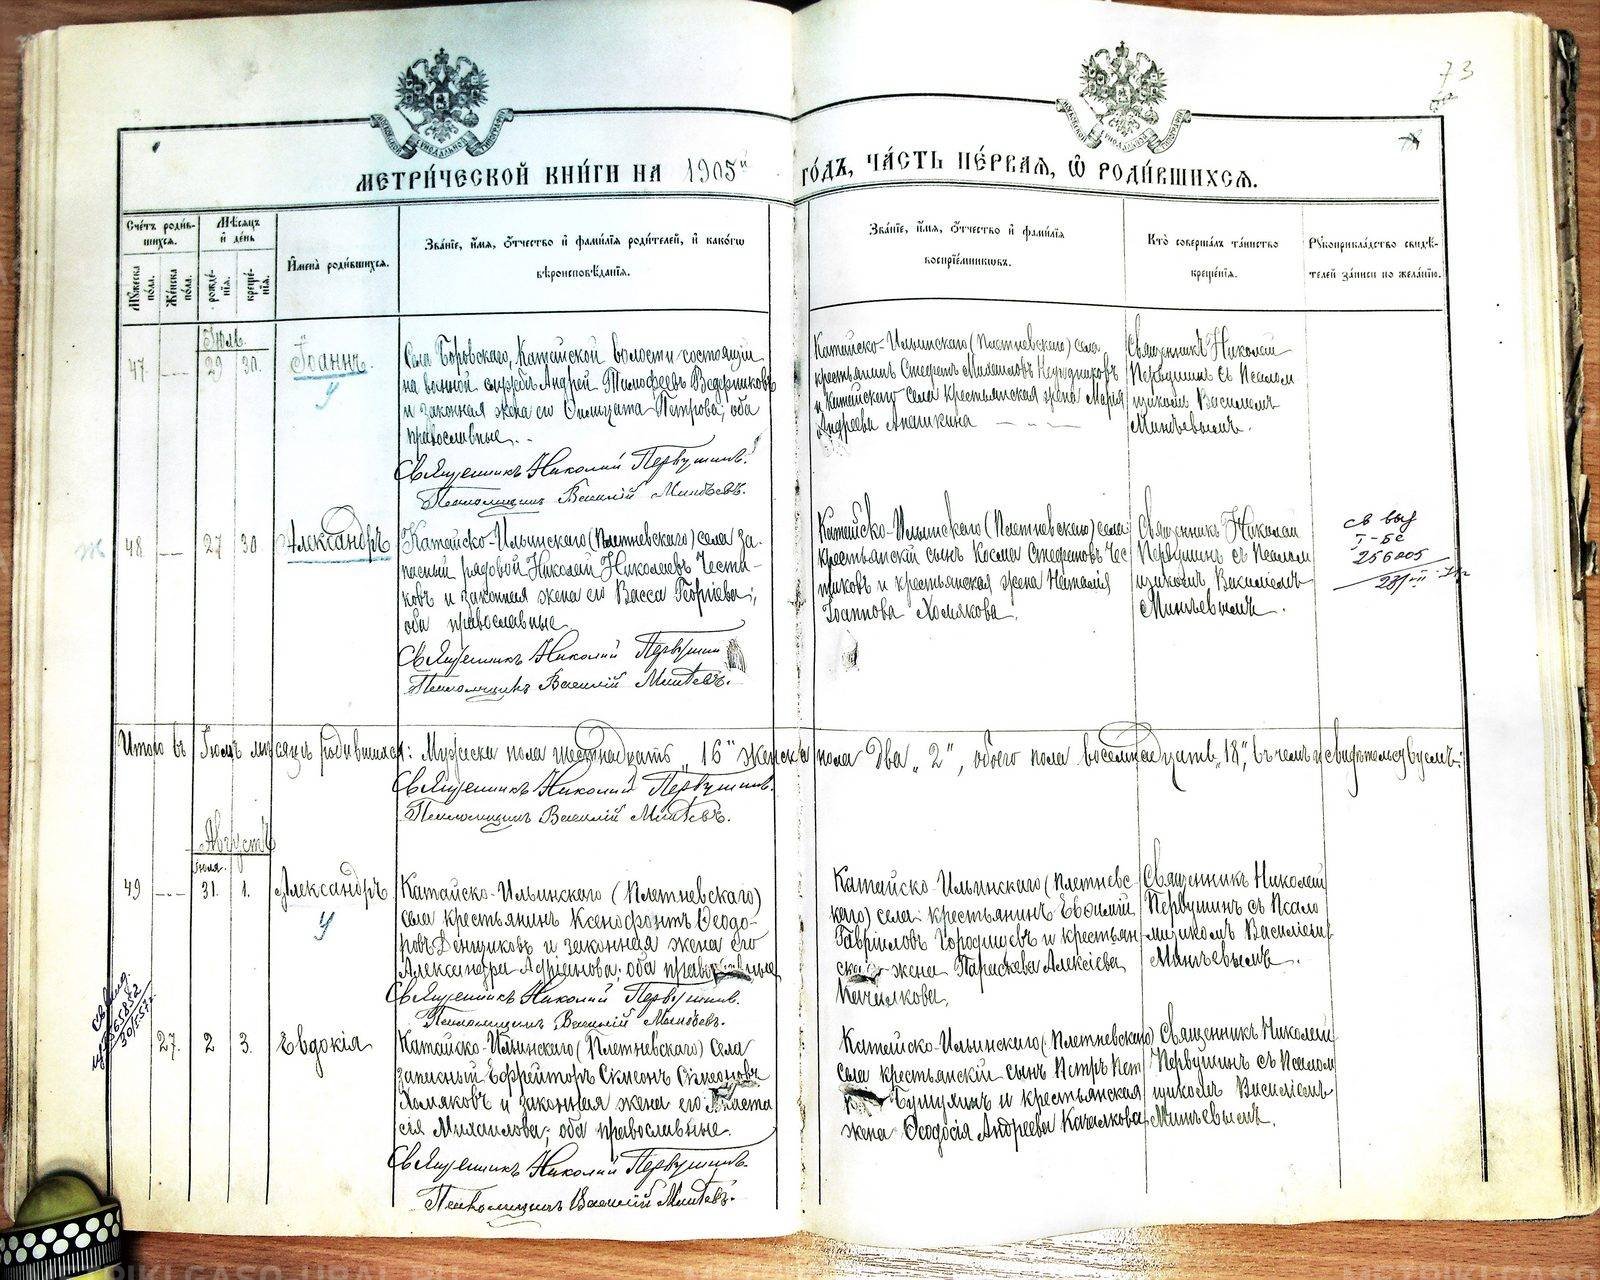 73
МЕТРИ́ЧЕСКОЙ КНИ́ГИ НА 1905й ГО́ДЪ, ЧА́СТЬ ПЕ́РВАЯ, Ѡ РОДИ́ВШИХСЯ.
Сче́тъ роди́в-
шихся.
Мꙋ́жеска по́ла.
Же́нска по́ла.
Мѣ́сяцъ
и де́нь
рожде́-
нія.
креще́-
нія.
Имена̀ роди́вшихся.
Зва́ніе, и́мя, ѻ́тчество и фами́лія роди́телей, и како́гѡ
вѣроисповѣ́данія.
Зва́ніе, и́мя, ѻ́тчество и фами́лія
воспріе́мникѡвъ.
Кто̀ соверша́лъ та́инство
креще́нія.
Рꙋкоприкла́дство свидѣ́-
телей за́писи по жела́нію.
Іюль.
47 — 29 30. Іоаннъ.
у
Села Боровскаго, Катайской волости состоящій
на военной службѣ Андрей Тимофеевъ Ведерниковъ
и законная жена его Петрова; оба
православные. -
Священникъ Николай Первушинъ.
Псаломщикъ Василій Минѣевъ.
Катайско-Ильинскаго (Плетневскаго) села
крестьянинъ Стефанъ Михаиловъ
и Катайскаго села крестьянская жена Марія
Андреева Апашкина
Священникъ Николай
Первушинъ съ Псалом
щикомъ Василіемъ
Минѣевымъ.
48 — 27 30 Александръ
Катайско-Ильинскаго (Плетневскаго) села за-
пасный рядовой Николай Николаевъ Чести-
ковъ и законная жена его Васса Георгіева;
оба православные.
Священникъ Николай Первушин
Псаломщикъ Василій Минѣевъ.
Катайско-Ильинскаго (Плетневскаго) села:
крестьянскій сынъ Косма Стефановъ Чес-
тиковъ и крестьянская жена Наталія
Іоаннова Холмякова.
Священникъ Николай
Первушинъ съ Псалом
щикомъ Василіемъ
Минѣевымъ.
св выд
256005
Итого въ Іюлѣ мѣсяцѣ родившихся: Мужеска пола шестнадцать „16" женска пола два „2", обоего пола восемнадцать „18", въ чемъ и свидѣтельствуемъ:
Священникъ Николай Первушинъ.
Псаломщикъ Василій Минѣевъ.
Августъ
іюля.
49 — 31. 1. Александръ
у
Катайско-Ильинскаго (Плетневскаго)
села крестьянинъ Ксенофонтъ Ѳеодо-
ровъ Денщиковъ и законная жена его
Александра Адріанова; оба православные
Священникъ Николай Первушинъ.
Псаломщикъ Василій Минѣевъ.
Катайско-Ильинскаго (Плетневс-
каго) села: крестьянинъ Евѳимій
Гавріиловъ Городищевъ и крестьян-
ская жена Параскева Алексіева
Качалкова.
Священникъ Николай
Первушинъ съ Псало
мщикомъ Василіемъ
Минѣевымъ.
27. 2 3. Евдокія
Катайско-Ильинскаго (Плетневскаго) села
запасный Ефрейторъ Симеонъ Симеоновъ
Холмяковъ и законная жена его Анаста
сія Михаилова; оба православные.
Священникъ Николай Первушинъ.
Псаломщикъ Василій Минѣевъ.
Катайско-Ильинскаго (Плетневскаго)
села крестьянскій сынъ Петръ Пет
Бушуминъ и крестьянская
жена Ѳеодосія Андреева Качалкова
Священникъ Николай
Первушинъ съ Псалом
щикомъ Василіемъ
Минѣевымъ.